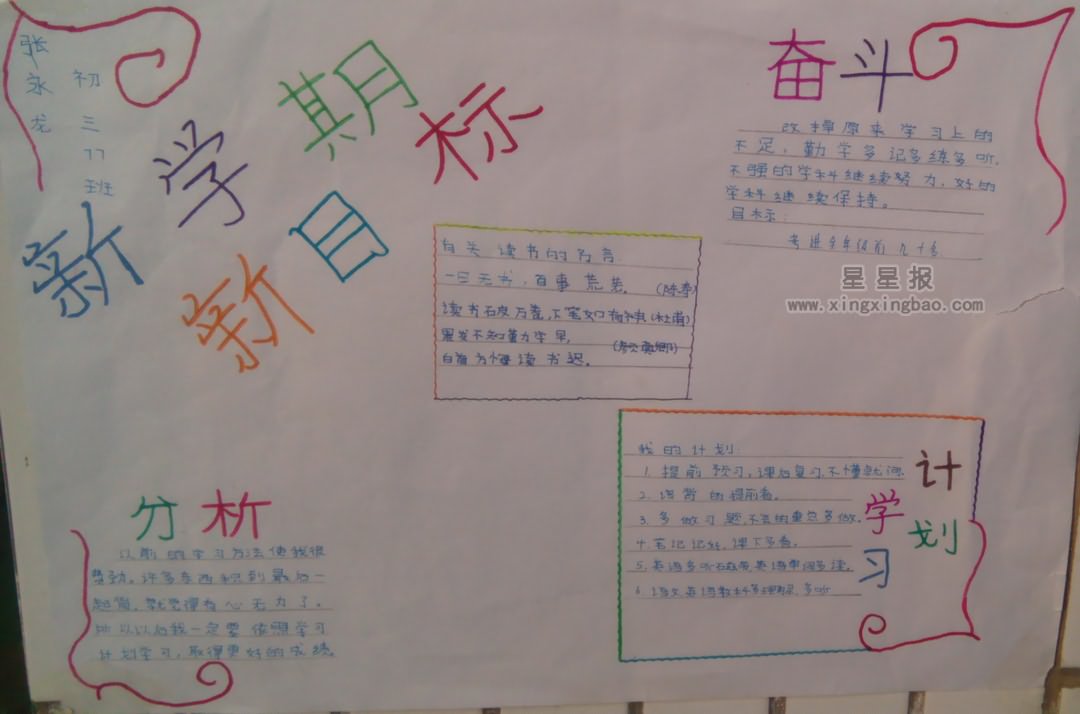 张永龙
初三77班
新学期
新目标
奋斗
改掉原来学习上的
不足，勤学多记多练多听，
不强的学科继续努力，好的
学科继续保持。
目标：
考进全年级前九十名
星星报
www.xingxingbao.com
有关读书的名言
一日无书，百事荒芜。（陈寿）
读书破万卷，下笔如有神（杜甫）
黑发不知勤学早，
白首方悔读书迟。（颜真卿）
我的计划
1. 提前预习，课后复习，不懂就问
2. 语背的提前看。
3. 多做习题，不会的重点多做。
4. 笔记记好，课下多看。
5. 英语多听英语单词多读。
6. 语文英语
学习
计划
分析
以前的学习方法使我很
费劲。许多东西积到最后一
起背，就觉得有心无力了。
所以以后我一定要依照学习
计划学习，取得更好的成绩。